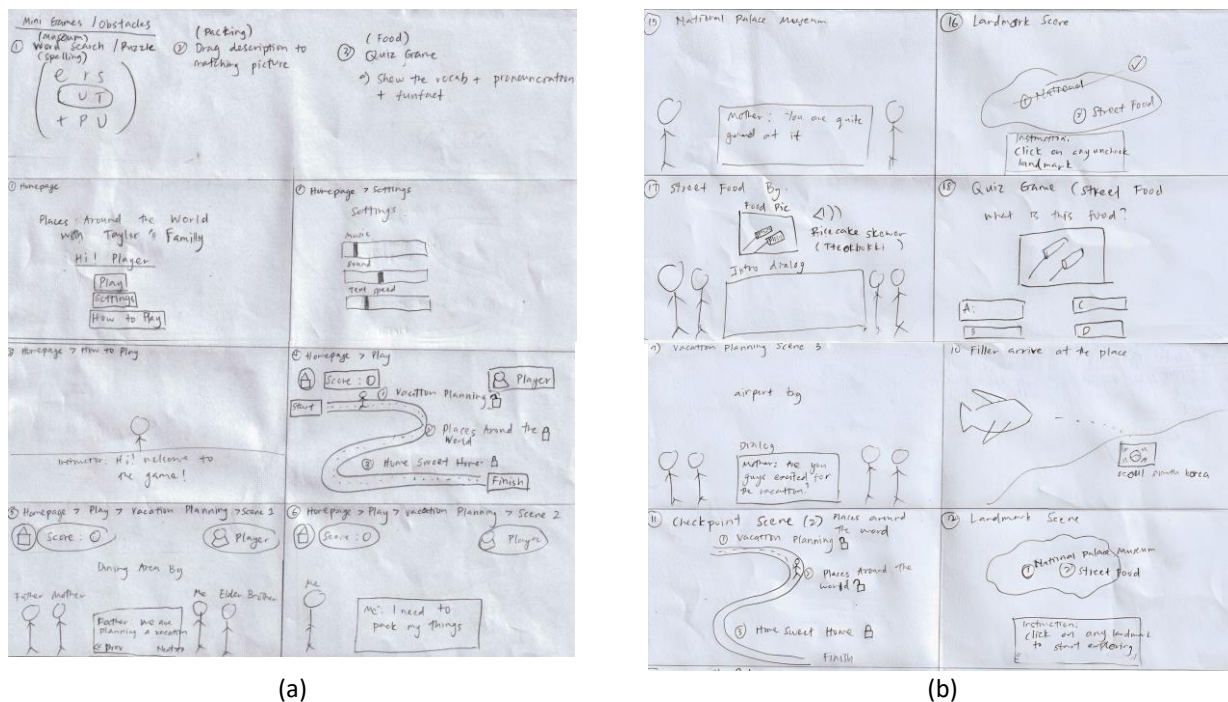 Mini Games / Obstacles
(museum)
① Word search / Puzzle
(spelling)
e r s
U T
t P U
(Packing)
② Drag description to
matching picture
(Food)
③ Quiz Game
a) Show the vocab + pronounciation
+ funfact
① Homepage
Places Around the World
with Taylor's Familly
Hi! Player
Play
Settings
How to Play
② Homepage > Settings
Settings
Music
Sound
Text speed
Homepage > How to Play
Instructor: Hi! welcome to
the game!
④ Homepage > Play
Score: 0
Player
Start
① Vacation Planning
② Places Around the
World
③ Home Sweet Home
Finish
⑤ Homepage > Play > Vacation Planning > Scene 1
Score: 0
Player
Dining Area Bg
Father Mother
Me Elder Brother
Father: we are
planning a vacation
Prev
⑥ Homepage > Play > vacation Planning > Scene 2
Score: 0
Player
Me
Me: I need to
pack my things
(a)
⑮ National Palace Museum
Mother: You are quite
good at it
⑯ Landmark Scene
① National
② Street Food
Instruction:
Click on any uncheck
landmark
⑰ Street Food Bg.
Food Pic
Rice cake skewer
(Tteokbokki)
Intro dialog
⑱ Quiz Game (Street Food
What is this food?
A:
B
C
D
9) Vacation Planning Scene 3
airport bg
Dialog
Mother: Are you
guys excited for
the vacation?
10 Filler arrive at the place
seoul korea
⑪ Checkpoint Scene (2) Places around
the word
① Vacation Planning
② Places Around the
World
③ Home Sweet Home
Finish
⑫ Landmark Scene
① National Palace Museum
② Street Food
Instruction:
click on any landmark
to start exploring
(b)